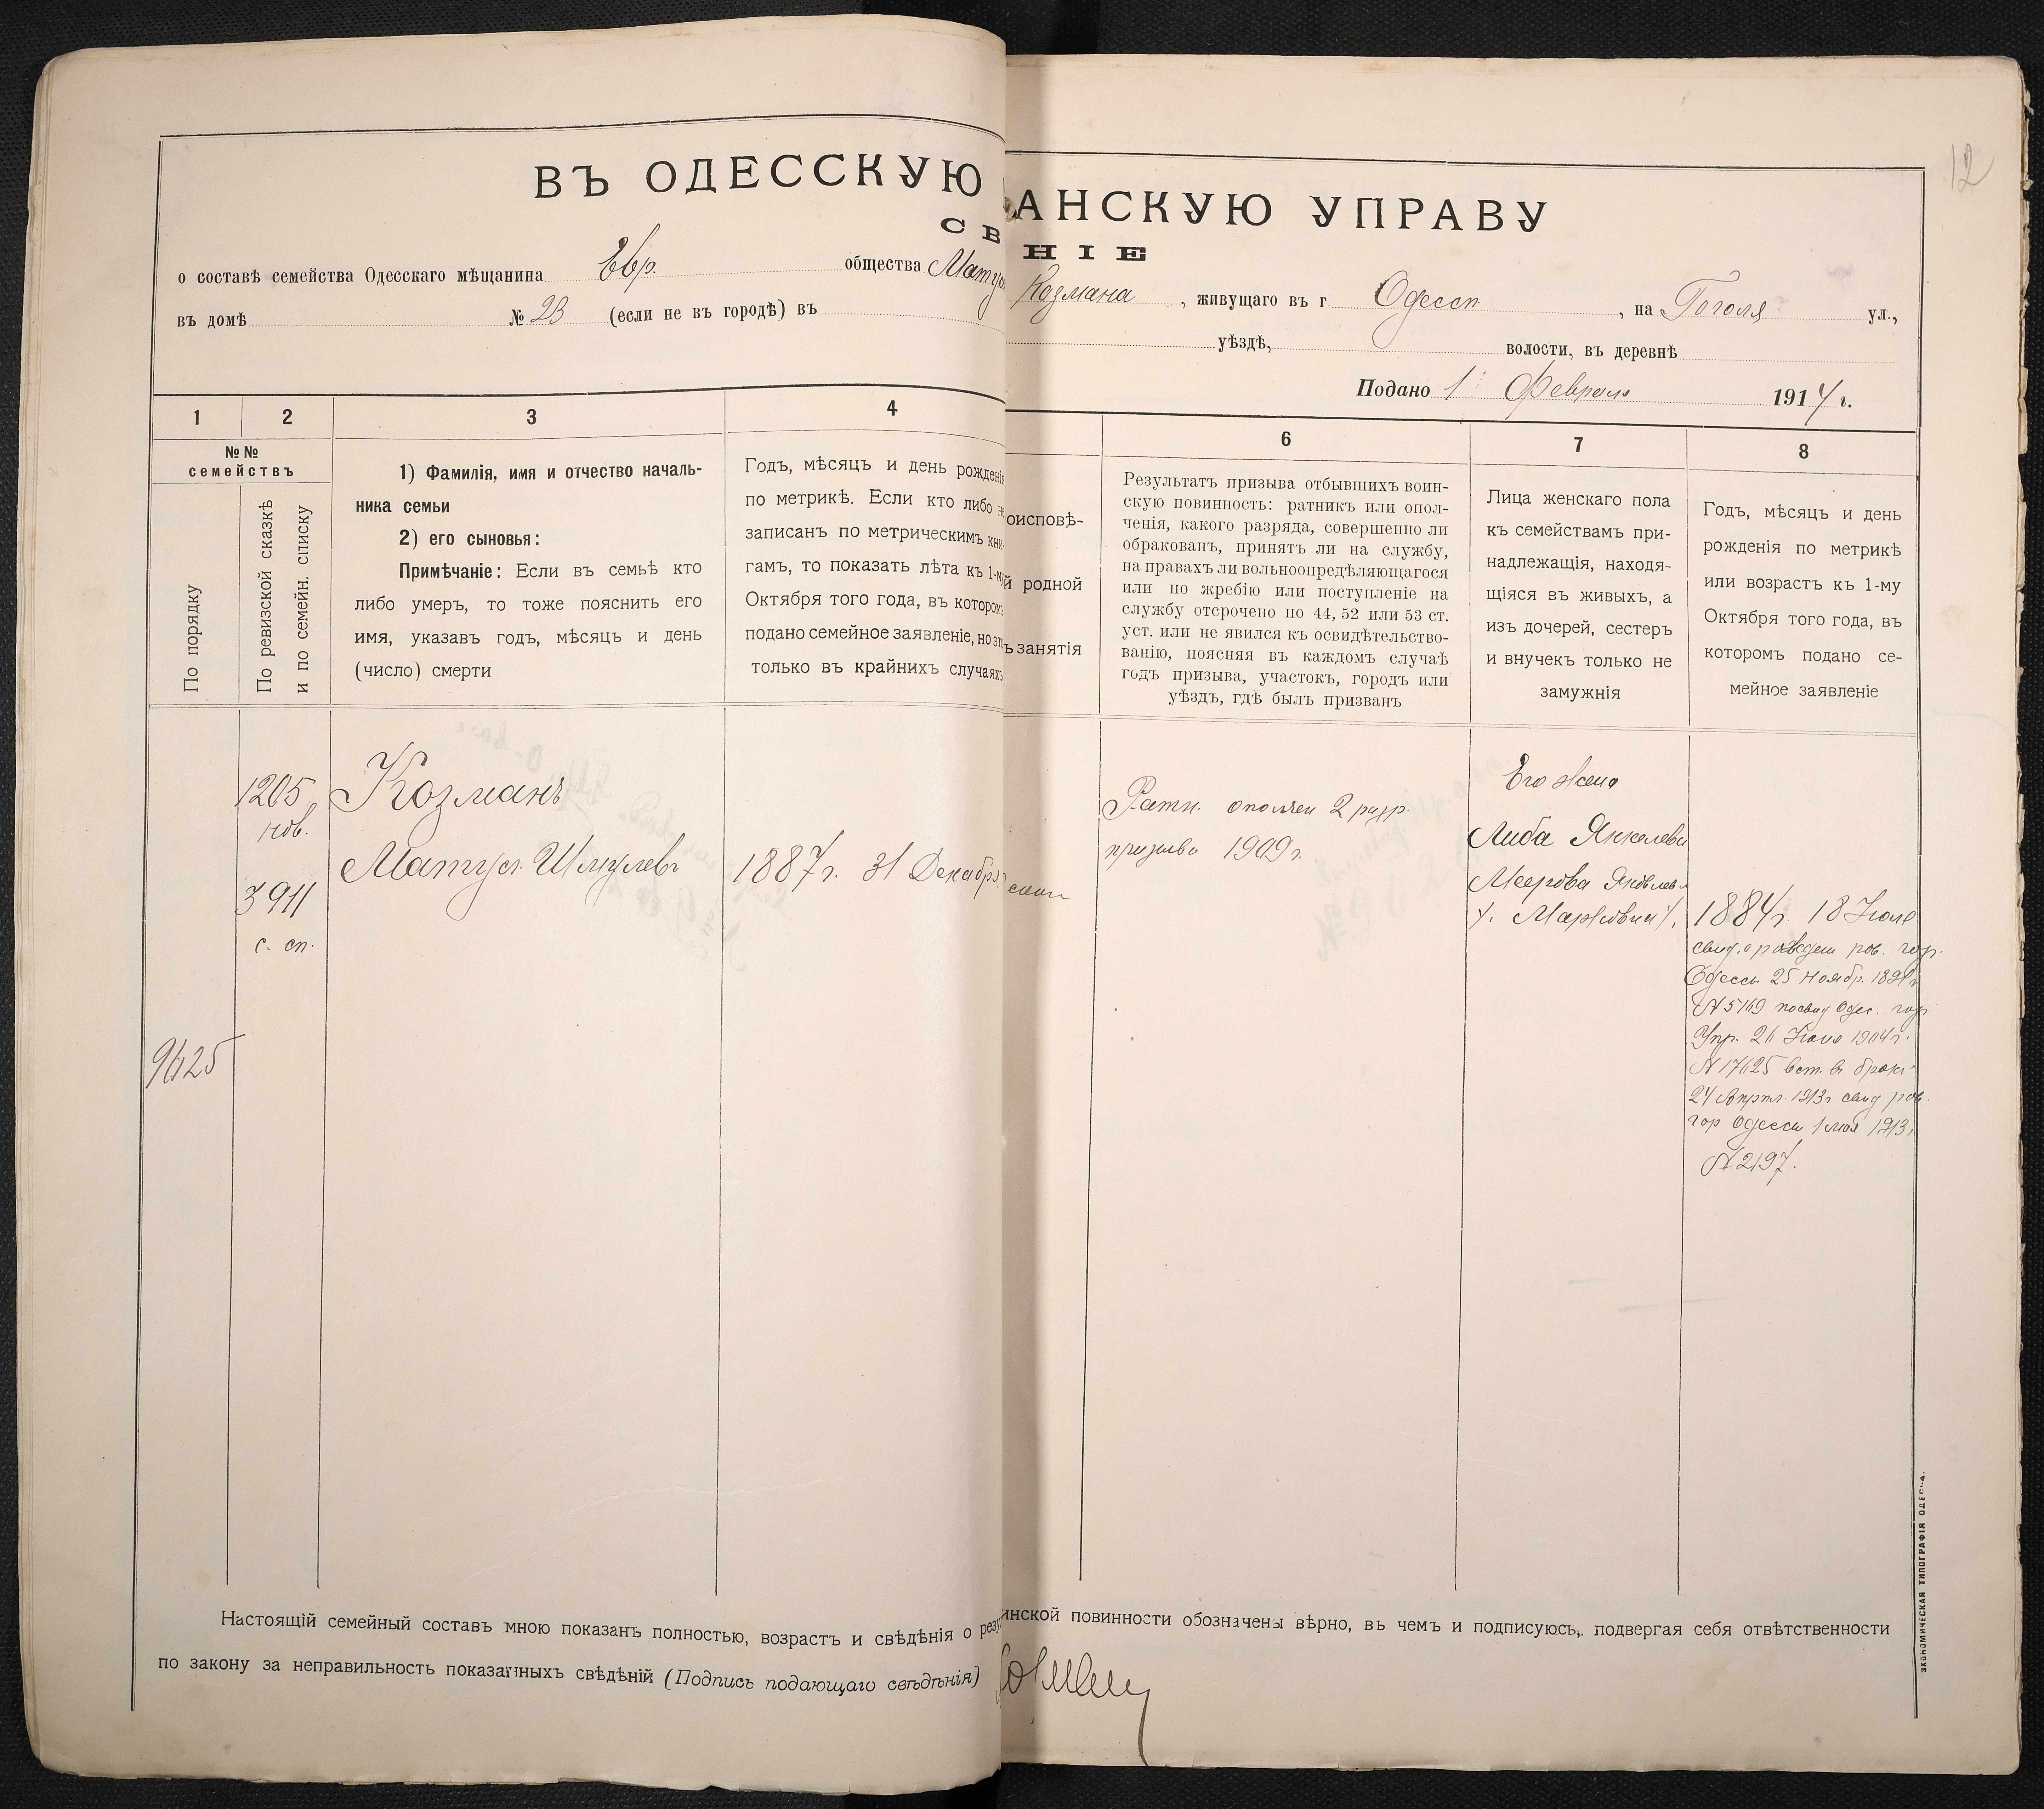 12
ВЪ ОДЕССКУЮ АНСКУЮ УПРАВУ
СВ НІЕ
о составѣ семейства Одесскаго мѣщанина Евр. общества Матус Козмана, живущаго въ г Одессѣ, на Гоголя ул.,
въ домѣ № 23 (если не въ городѣ) въ уѣздѣ, волости, въ деревнѣ
Подано 1 Февраля 1914 г.
1 2 3 4 6 7 8
№№
семействъ
По порядку
По ревизской сказкѣ
и по семейн. списку
1) Фамилія, имя и отчество началь-
ника семьи
2) его сыновья:
Примѣчаніе: Если въ семьѣ кто
либо умеръ, то тоже пояснить его
имя, указавъ годъ, мѣсяцъ и день
(число) смерти
Годъ, мѣсяцъ и день рожденія
по метрикѣ. Если кто либо не
записанъ по метрическимъ кни-
гамъ, то показать лѣта къ 1-му
Октября того года, въ которомъ
подано семейное заявленіе, но это
только въ крайнихъ случаяхъ
оисповѣ-
й родной
ъ занятія
Результатъ призыва отбывшихъ воин-
скую повинность: ратникъ или опол-
ченія, какого разряда, совершенно ли
обракованъ, принятъ ли на службу,
на правахъ ли вольноопредѣляющагося
или по жребію или поступленіе на
службу отсрочено по 44, 52 или 53 ст.
уст. или не явился къ освидѣтельство-
ванію, поясняя въ каждомъ случаѣ
годъ призыва, участокъ, городъ или
уѣздъ, гдѣ былъ призванъ
Лица женскаго пола
къ семействамъ при-
надлежащія, находя-
щіяся въ живыхъ, а
изъ дочерей, сестеръ
и внучекъ только не
замужнія
Годъ, мѣсяцъ и день
рожденія по метрикѣ
или возрастъ къ 1-му
Октября того года, въ
которомъ подано се-
мейное заявленіе
9625
1205
нов.
3911
с. сп.
Козманъ
Матусъ Шмулевъ
1887 г. 31 Декабря
Ратн. ополчен 2 разр.
призыва 1909 г.
Его жена
Либа Янкелева
Меерова Яковлева
Марковичъ
1884 г. 18 Іюля
свид. о рожден рав. гор.
Одессы 25 Ноябр.
№ 5169 Одес. гор
Упр. 26 Іюля 1904 г.
№ 17625 вст. въ бракъ
24 Апрѣл. 1913 г свид рав.
гор Одессы 1 мая 1913 г
№ 2197.
Настоящій семейный составъ мною показанъ полностью, возрастъ и свѣдѣнія о резу инской повинности обозначены вѣрно, въ чемъ и подписуюсь, подвергая себя отвѣтственности
по закону за неправильность показанныхъ свѣдѣній (Подпись подающаго свѣдѣнія)
ЭКОНОМИЧЕСКАЯ ТИПОГРАФІЯ ОДЕССА.